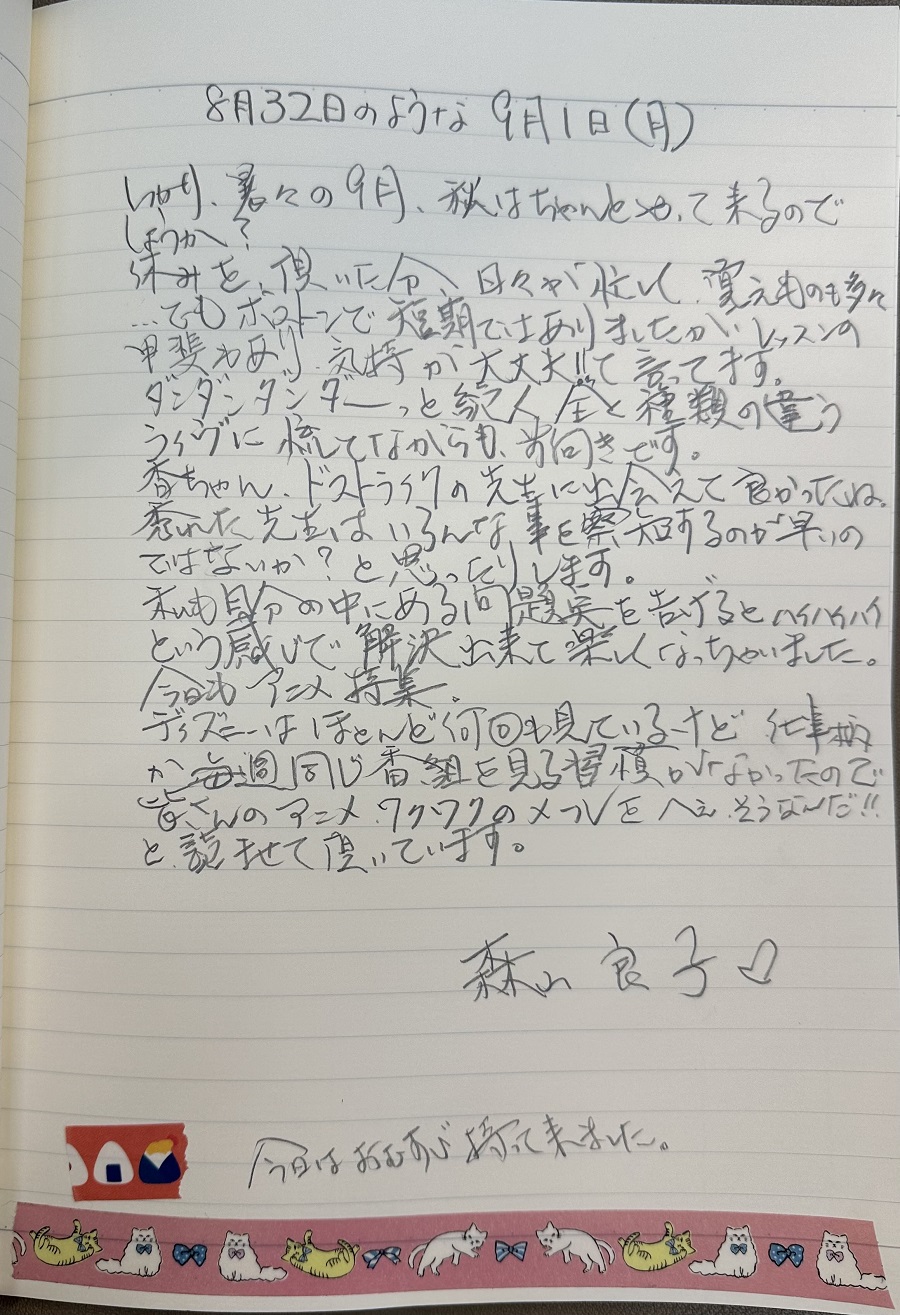 8月32日のような 9月1日(月)
しかし、暑々の9月、秋はちゃんとやって来るので
しょうか?
休みを、頂いた分、日々が忙しく、覚えものも多々
…でもボストンで短期ではありましたが、レッスンの
甲斐もあり、気持が大丈夫!!て言ってます。
ダンダンダンダーっと続く、全と種類の違う
ライヴに慌ててながらも、前向きです。
香ちゃん、ドストライクの先生に出会えて良かったね。
優れた先生はいろんな事を察知するのが早いの
ではないか?と思ったりします。
私も自分の中にある問題点を告げるとハイハイハイ
という感じで解決出来て楽しくなっちゃいました。
今日もアニメ特集、
ディズニーはほとんど何回も見ているけど 仕事柄
か毎週同じ番組を見る習慣がなかったので
皆さんのアニメ、ワクワクのメールをへぇ、そうなんだ!!
と読ませて頂いています。
森山良子♡
今日はおむすび持って来ました。